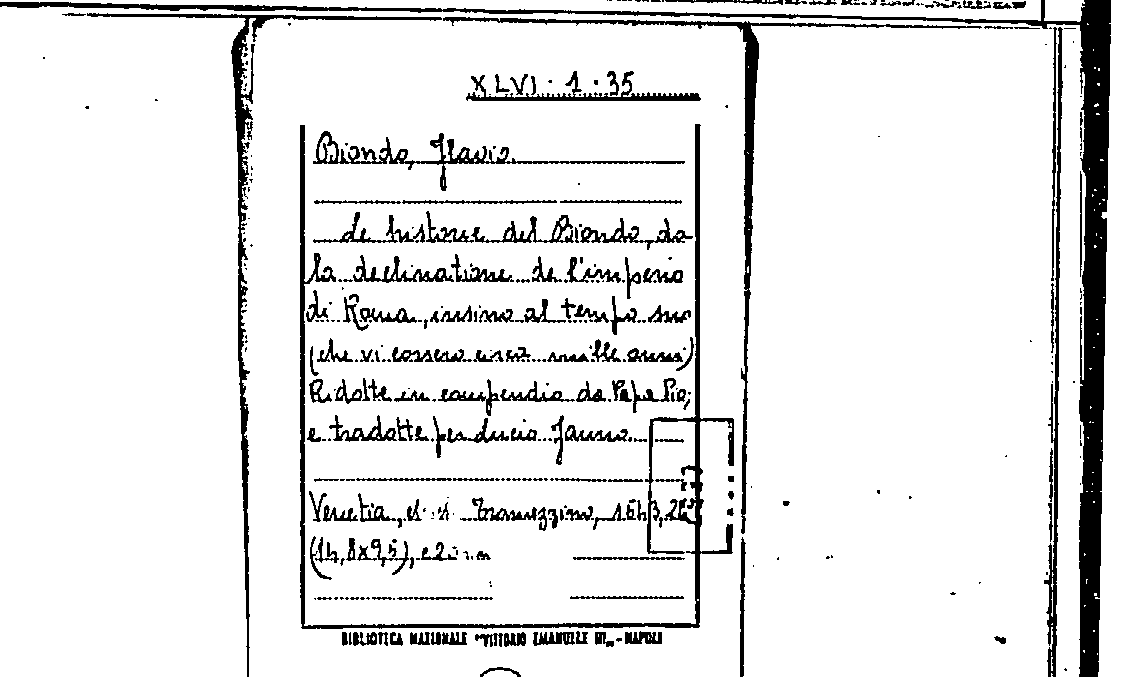 XLVI. 1. 35
Biondo, Flavio.
Le historie del Biondo, da
la declinatione de l'imperio
di Roma, insino al tempo suo
(che vi cossero circa mille anni)
Ridotte in compendio da Papa Pio;
e tradotte per Lucio Fauno.
Venetia, Tramezzino, 1543,
(14,8x9,5),
BIBLIOTECA NAZIONALE "VITTORIO EMANUELE III„ - NAPOLI